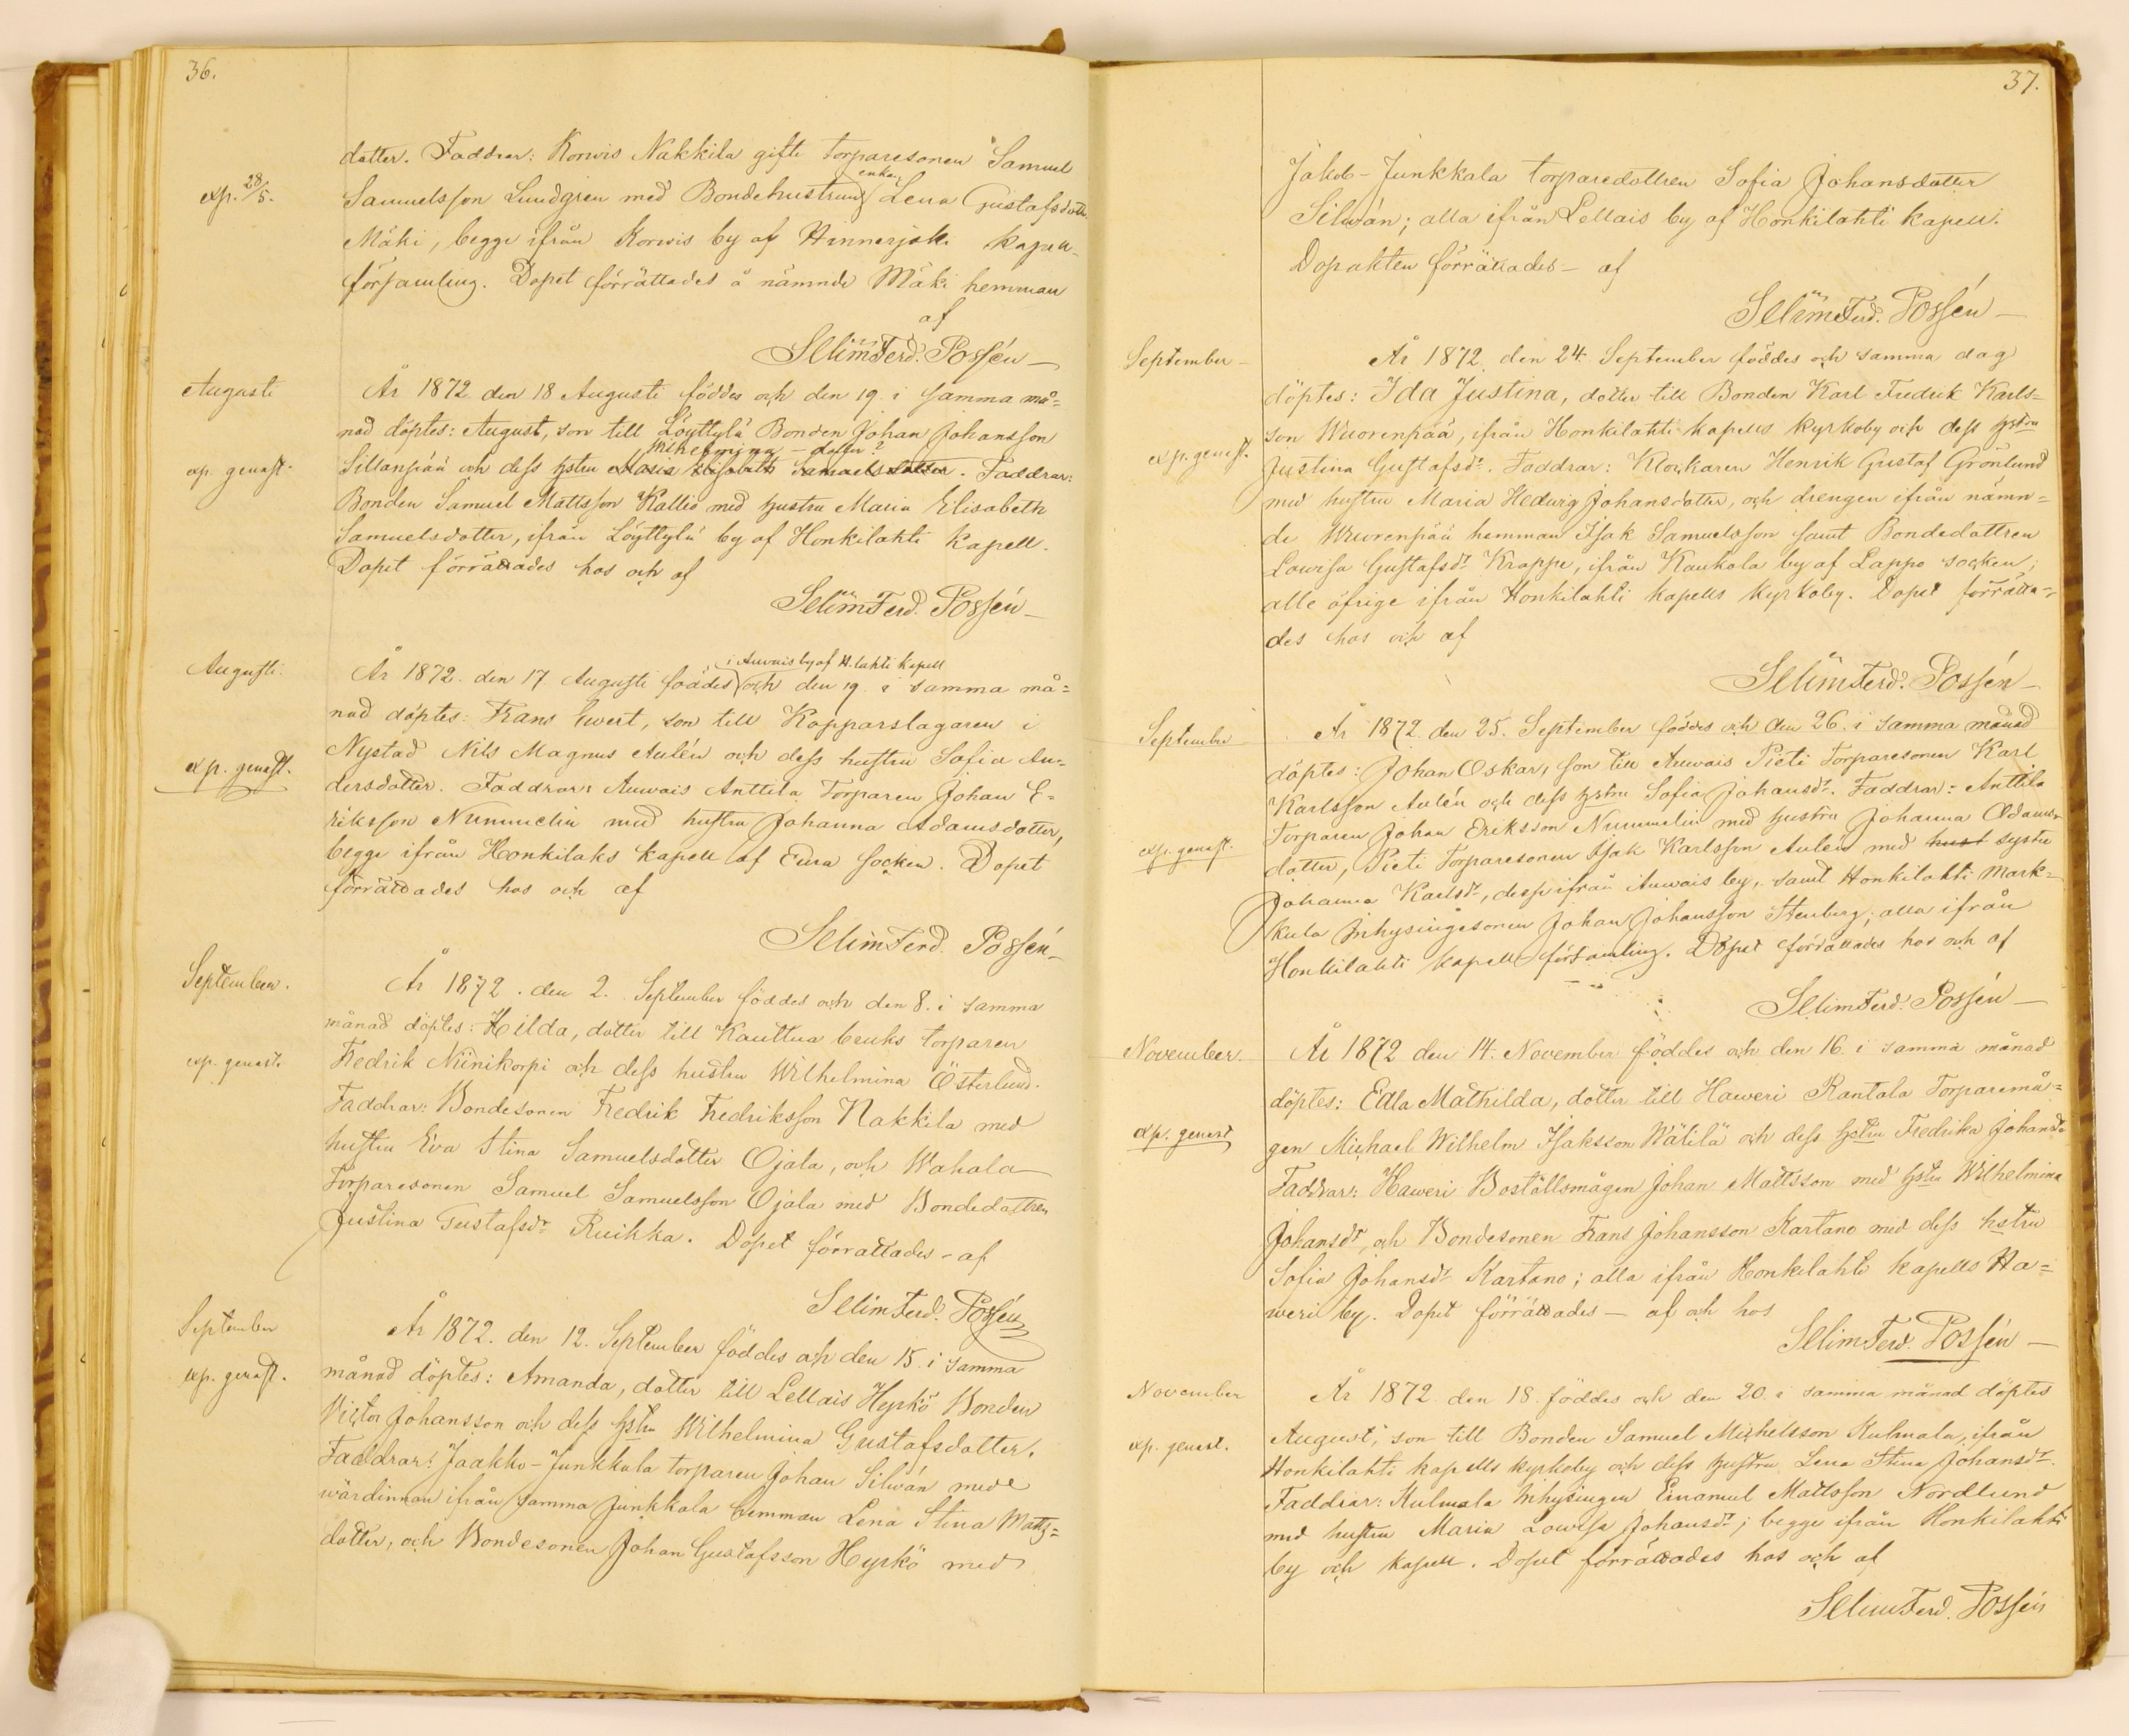 36.
datter. Faddrar: Korwis Nakkila gifte torparesonen Samuel
enkan
exp. 28/5.
Samuelsson Lundgren med Bondehustrun Lena Gustafsdotter
Mäki, begge ifrån Korwis by af Hinnerjoki kapell-
församling. Dopet förrättades å nämnde Mäki hemman
af
Selim Ferd. Possén
Augusti
År 1872 den 18 Augusti föddes och den 19 i samma må=
nad döptes: August, son till Löyttylä Bonden Johan Johansson
Wilhelmina - dotter?
exp. genast.
Sillanpää och dess hstru Maria Elisabeth Samuelsdotter. Faddrar:
Bonden Samuel Mattsson Kallio med hustru Maria Elisabeth
Samuelsdotter, ifrån Löyttylä by af Honkilahti Kapell.
Dopet förrättades hos och af
Selim Ferd. Possén
i Auwais by af H.lahti kapell
Augusti.
År 1872. den 17 Augusti föddes och den 19. i samma må=
nad döptes: Frans Ewert, son till Kopparslagaren i
Nystad Nils Magnus Aulén och dess hustru Sofia An=
exp. genast.
dersdotter. Faddrar: Auwais Anttila Torparen Johan E=
riksson Nummelin med hustru Johanna Adamsdotter,
begge ifrån Honkilaks kapell af Eura socken. Dopet
förrättades hos och af
Selim Ferd. Possén
September.
År 1872. den 2. September föddes och den 8. i samma
månad döptes: Hilda, dotter till Kauttua bruks torparen
exp. genast.
Fredrik Niinikorpi och dess hustru Wilhelmina Österlund.
Faddrar: Bondesonen Fredrik Fredriksson Nakkila med
hustru Eva Stina Samuelsdotter Ojala, och Wahala
Torparesonen Samuel Samuelsson Ojala med Bondedottren
Justina Gustafsdr Ruikka. Dopet förrättades - af
Selim Ferd. Possén
September
År 1872. den 12. September föddes och den 15. i samma
exp. genast.
månad döptes: Amanda, dotter till Lellais Heyrkö Bonden
Victor Johansson och dess hstru Wilhelmina Gustafsdotter.
Faddrar: Jaakko-Junkkala torparen Johan Silwán med
wärdinnan ifrån samma Junkkala hemman Lena Stina Matts=
dotter, och Bondesonen Johan Gustafsson Heyrkö med
37.
Jakob-Junkkala torparedottren Sofia Johansdotter
Silwán; alla ifrån Lellais by af Honkilahti kapell.
Dopakten förrättades - af
Selim Ferd. Possén
September
År 1872. den 24. September föddes och samma dag
döptes: Ida Justina, dotter till Bonden Karl Fredrik Karls=
son Wuorenpää, ifrån Honkilahti kapells kyrkoby och dess hstru
exp. genast.
Justina Gustafsdr. Faddrar: Klockaren Henrik Gustaf Grönlund
med hustru Maria Hedwig Johansdotter, och drengen ifrån nämn=
de Wuorenpää hemman Isak Samuelsson samt Bondedottren
Lowisa Gustafsdr Krappe, ifrån Kaukola by af Lappo socken;
alle öfrige ifrån Honkilahti kapells kyrkoby. Dopet förrätta=
des hos och af
Selim Ferd. Possén
September
År 1872 den 25. September föddes och den 26. i samma månad
döptes: Johan Oskar, son till Auwais Pieti Torparesonen Karl
Karlsson Aulén och dess hstru Sofia Johansdr. Faddrar: Anttila
exp. genast.
Torparen Johan Eriksson Nummelin med hustru Johanna Adams-
dotter, Pieti Torparesonen Isak Karlsson Aulén med hust systu
Johanna Karlsdr, desse ifrån Auwais by, samt Honkilahti Mark=
kula Inhysingesonen Johan Johansson Stenberg; alla ifrån
Honkilahti kapellförsamling. Dopet förrättades hos och af
Selim Ferd. Possén
November
År 1872 den 14. November föddes och den 16. i samma månad
döptes: Edla Mathilda, dotter till Haweri Rantala Torparemå=
exp. genast
gen Michael Wilhelm Isaksson Wälilä och dess hstru Fredrika Johansdr
Faddrar: Haweri Boställsmågen Johan Mattsson med hstru Wilhelmina
Johansdr, och Bondesonen Frans Johansson Kartano med dess hstru
Sofia Johansdr Kartano; alla ifrån Honkilahti kapells Ha=
weri by. Dopet förrättades - af och hos
Selim Ferd. Possén
November
År 1872 den 18. föddes och den 20 i samma månad döptes
exp. genast.
August, son till Bonden Samuel Michelsson Kulmala, ifrån
Honkilahti kapells kyrkoby och dess hustru Lena Stina Johansdr.
Faddrar: Kulmala Inhysingen Emanuel Mattsson Nordlund
med hustru Maria Lowisa Johansdr; begge ifrån Honkilahti
by och kapell. Dopet förrättades hos och af
Selim Ferd. Possén